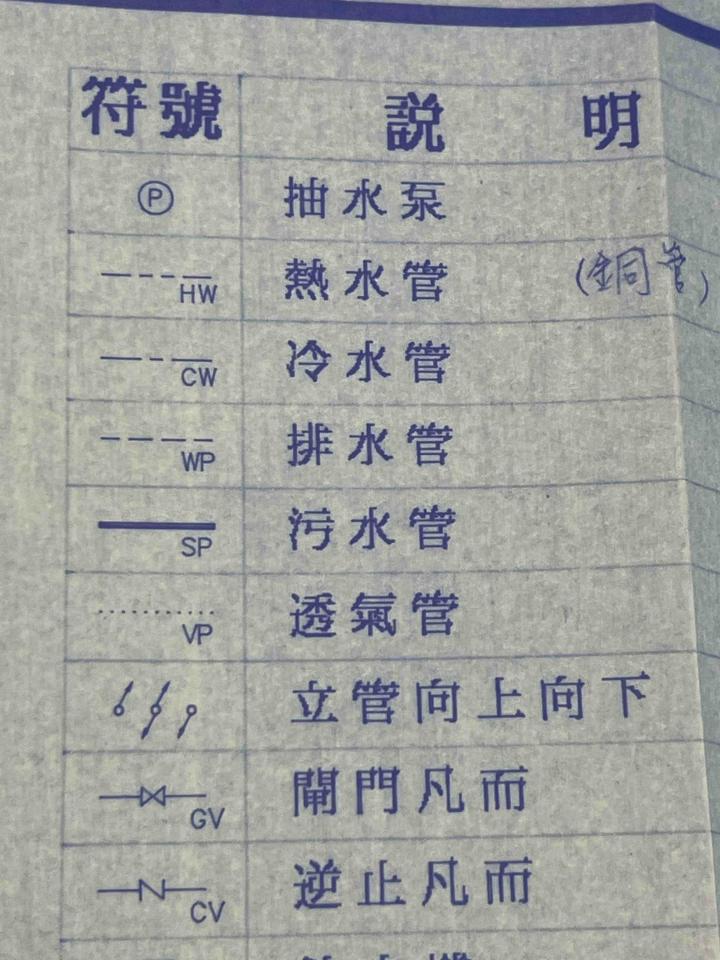 符號 說明
Ⓟ 抽水泵
HW 熱水管 (銅管)
CW 冷水管
WP 排水管
SP 污水管
VP 透氣管
立管向上向下
GV 閘門凡而
CV 逆止凡而